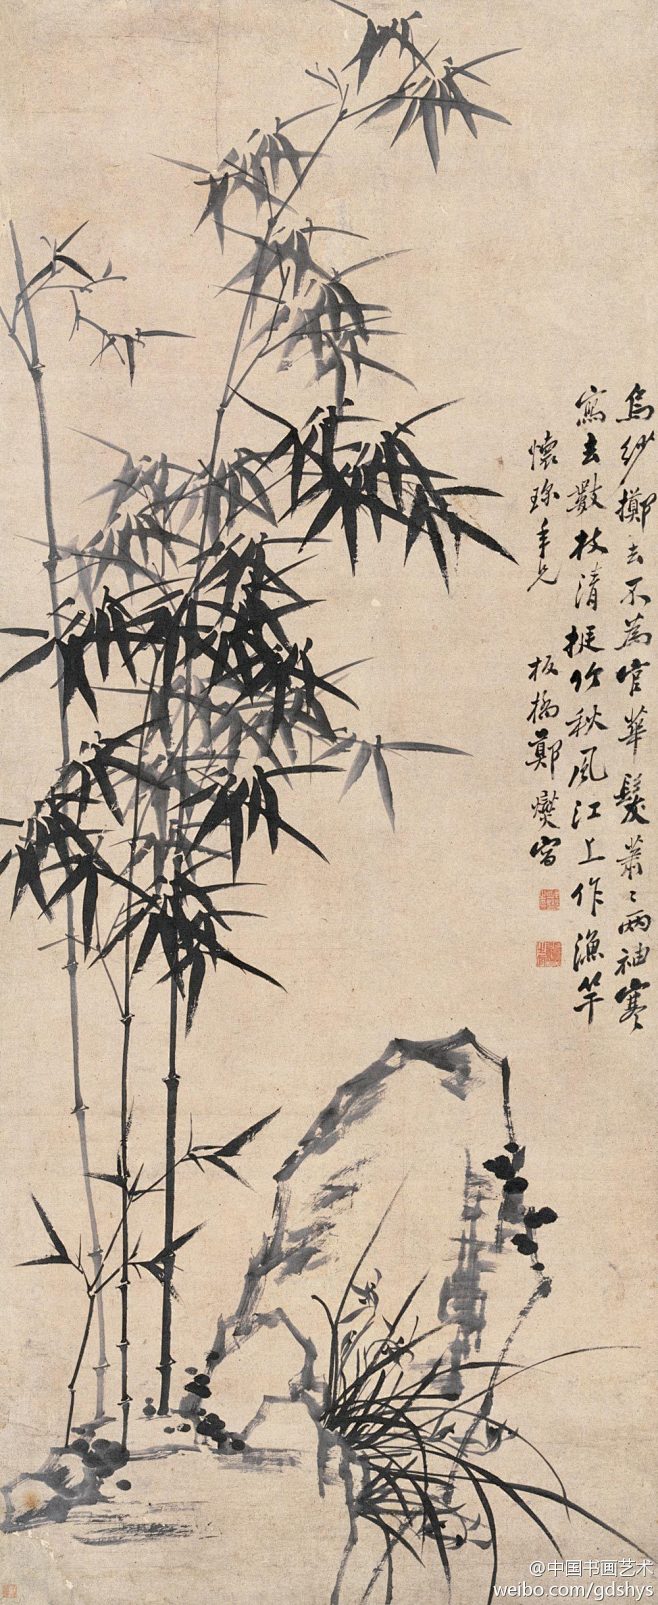 烏紗擲去不為官華髮蕭〻兩袖寒
寫去數枝清挺竹秋風江上作漁竿
懷珎年兄 板橋鄭燮寫
@中国书画艺术
weibo.com/gdshys